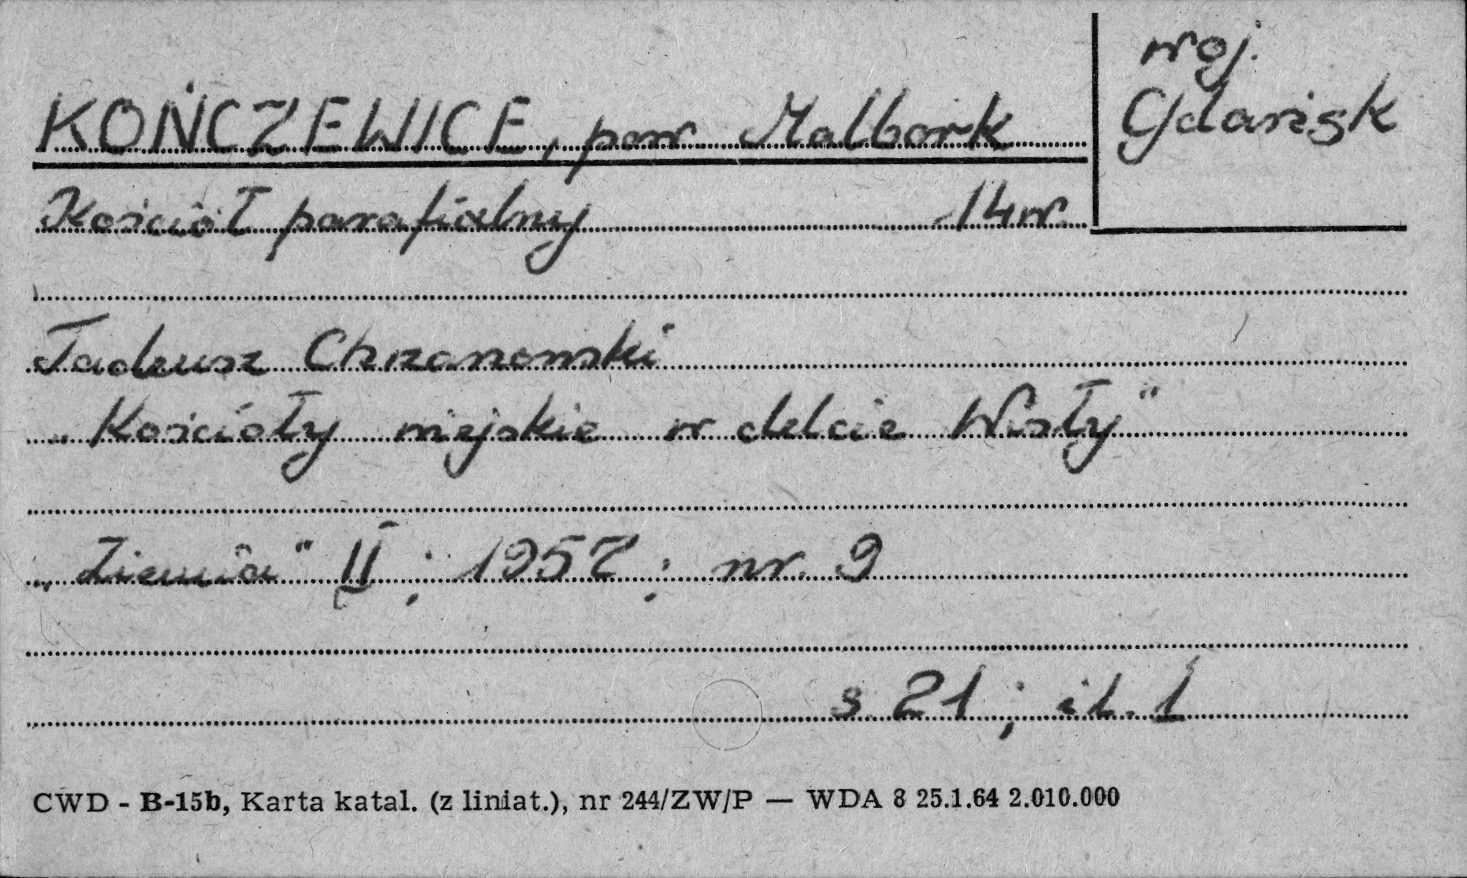 woj.
Gdańsk
KOŃCZEWICE, pow Malbork
Kościół parafialny 14w.
Tadeusz Chrzanowski
„Kościoły wiejskie w delcie Wisły"
„Ziemia" II ; 1957 ; nr. 9
s. 21 ; il. 1
CWD - B-15b, Karta katal. (z liniat.), nr 244/ZW/P — WDA 8 25.1.64 2.010.000